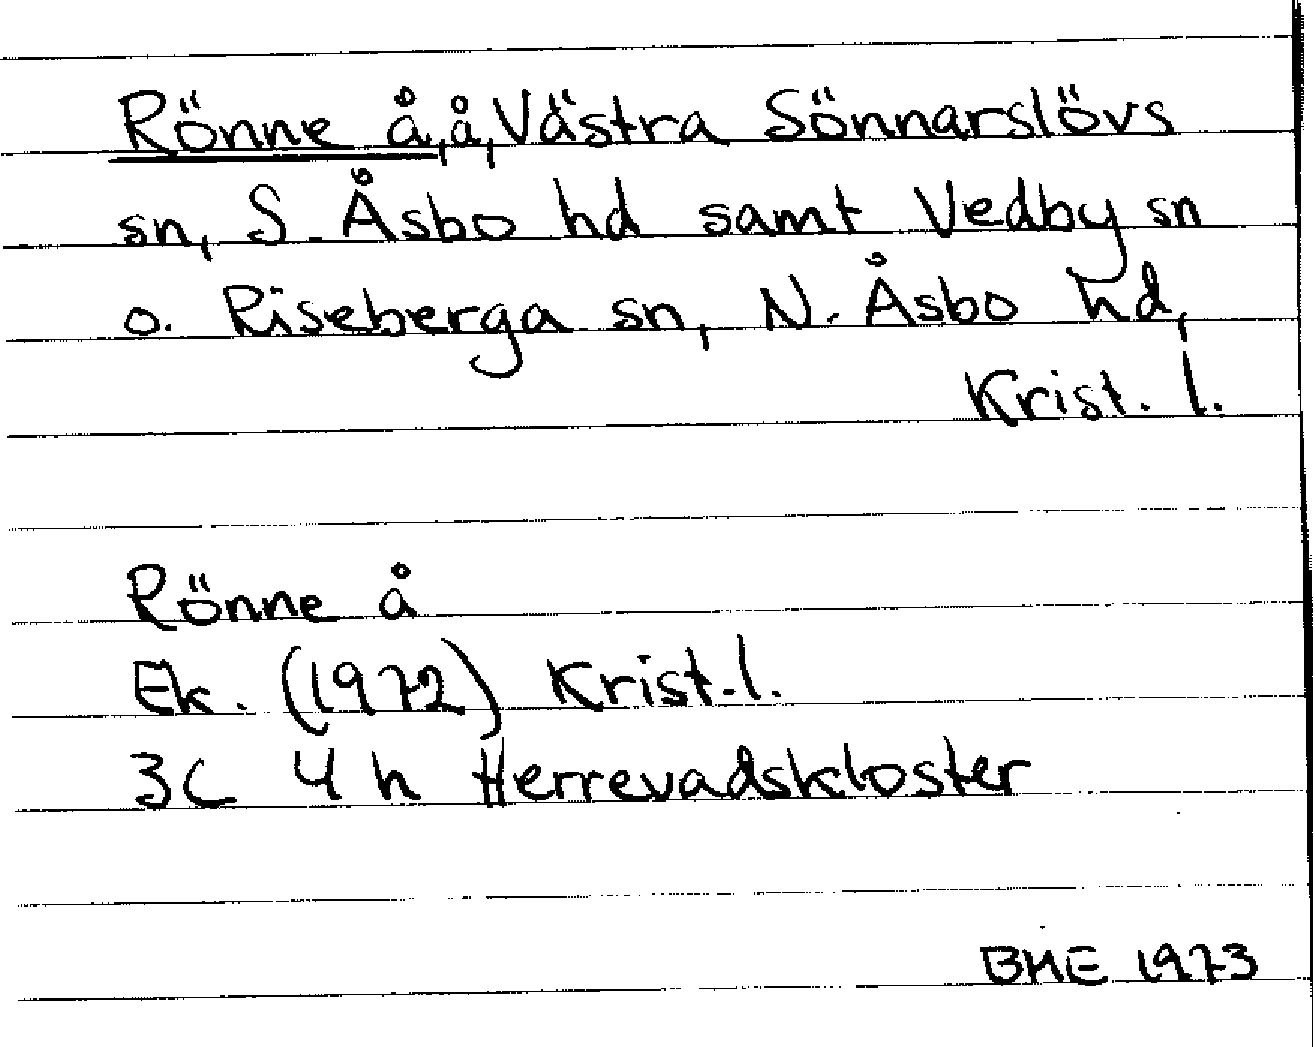 Rönne å, å, Västra Sönnarslövs
sn, S. Åsbo hd samt Vedby sn
o. Riseberga sn, N. Åsbo hd,
Krist. l.
Rönne å
Ek. (1972) Krist. l.
3C 4h Herrevadskloster
BME 1973